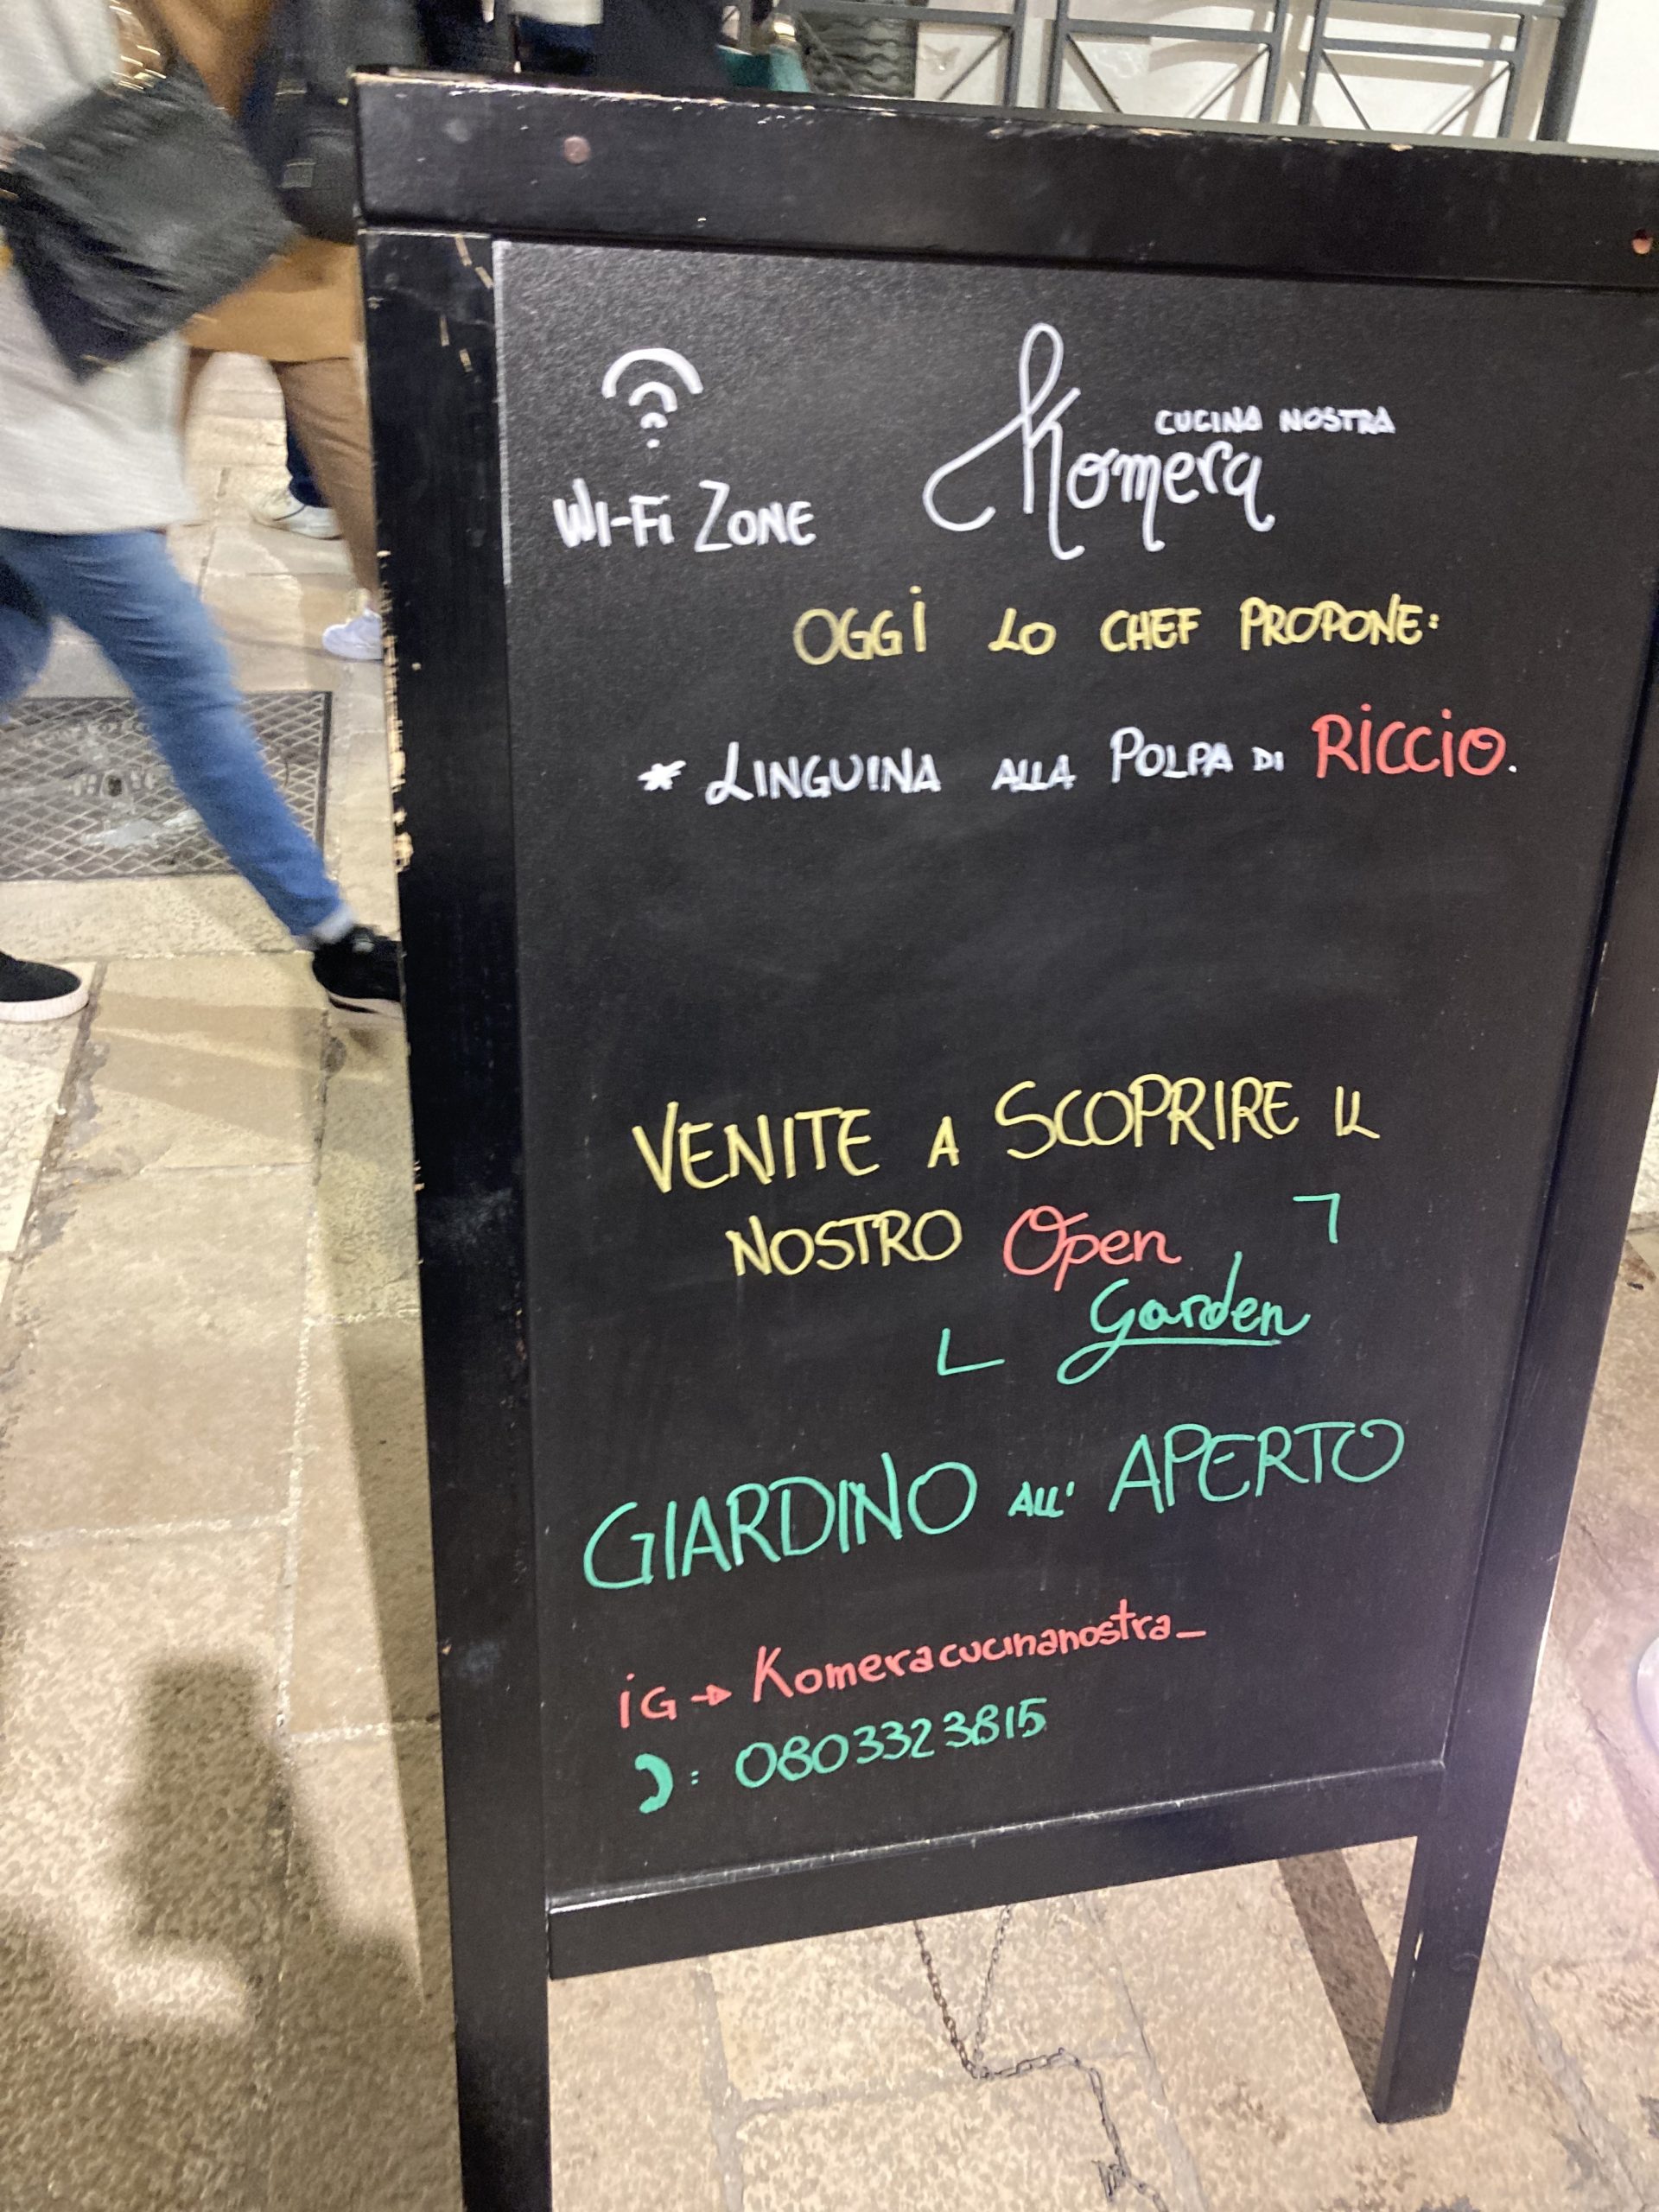 WI-Fi ZONE
CUCINA NOSTRA
Komera
OGGI LO CHEF PROPONE:
* LINGUINA ALLA POLPA DI RICCIO.
VENITE A SCOPRIRE IL
NOSTRO Open
Garden
GIARDINO ALL' APERTO
iG → Komeracucinanostra_
: 0803323815